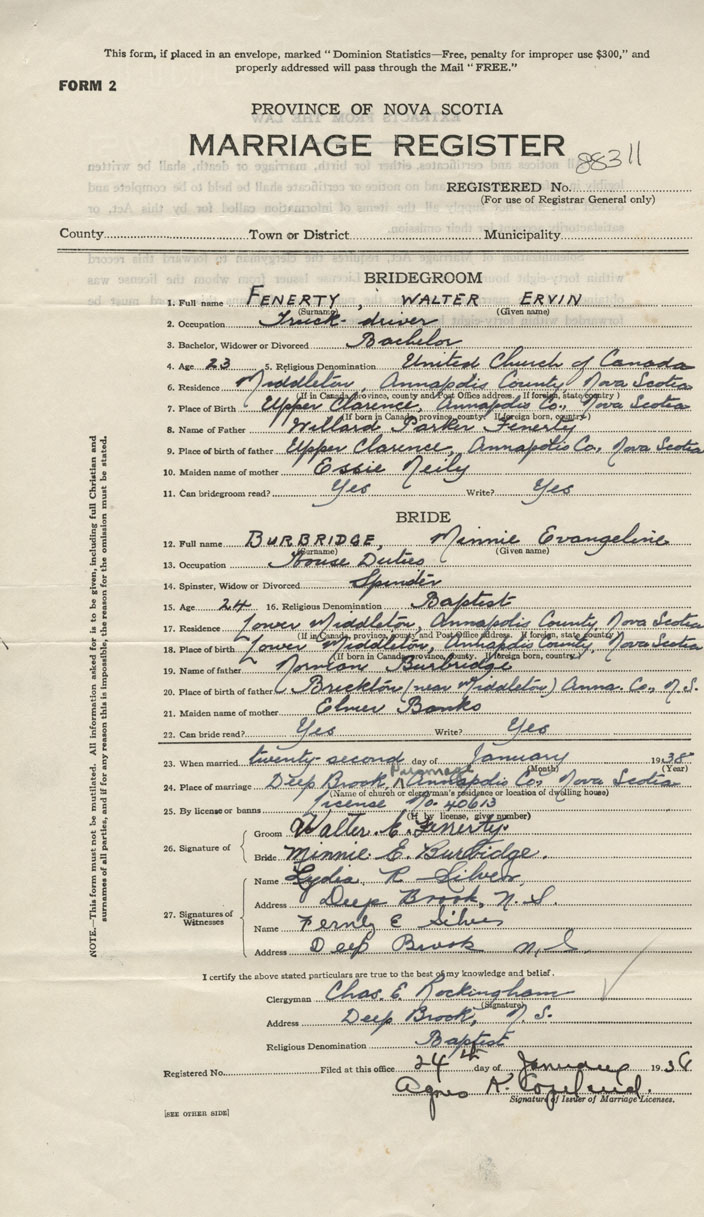 This form, if placed in an envelope, marked "Dominion Statistics—Free, penalty for improper use $300," and
properly addressed will pass through the Mail "FREE."
FORM 2
PROVINCE OF NOVA SCOTIA
MARRIAGE REGISTER
88311
REGISTERED No.
(For use of Registrar General only)
County Town or District Municipality
BRIDEGROOM
1. Full name FENERTY, WALTER ERVIN
(Surname) (Given name)
2. Occupation Truck-driver
3. Bachelor, Widower or Divorced Bachelor
4. Age 23 5. Religious Denomination United Church of Canada
6. Residence Middleton, Annapolis County, Nova Scotia
(If in Canada, province, county and Post Office address. If foreign, state country)
7. Place of Birth Upper Clarence, Annapolis Co., Nova Scotia
(If born in Canada, province, county. If foreign born, country)
8. Name of Father Willard Parker Fenerty
9. Place of birth of father Upper Clarence, Annapolis Co., Nova Scotia
10. Maiden name of mother Essie Neily
11. Can bridegroom read? Yes Write? Yes
BRIDE
12. Full name BURBRIDGE, Minnie Evangeline
(Surname) (Given name)
13. Occupation House Duties
14. Spinster, Widow or Divorced Spinster
15. Age 24 16. Religious Denomination Baptist
17. Residence Lower Middleton, Annapolis County, Nova Scotia
(If in Canada, province, county and Post Office address. If foreign, state country)
18. Place of birth Lower Middleton, Annapolis County, Nova Scotia
(If born in Canada, province, county. If foreign born, country)
19. Name of father Norman Burbridge
20. Place of birth of father Brickton (near Middleton) Anna. Co., N.S.
21. Maiden name of mother Elmer Banks
22. Can bride read? Yes Write? Yes
23. When married twenty-second day of January 1938
(Month) (Year)
24. Place of marriage Deep Brook, Annapolis Co., Nova Scotia
(Name of church or clergyman's residence or location of dwelling house)
25. By license or banns license No. 40613
(If by license, give number)
26. Signature of
Groom Walter E. Fenerty.
Bride Minnie E. Burbidge.
27. Signatures of Witnesses
Name Lydia R. Silver,
Address Deep Brook, N.S.
Name E Silver
Address Deep Brook N.S.
I certify the above stated particulars are true to the best of my knowledge and belief.
Clergyman Chas. E. Rockingham
(Signature)
Address Deep Brook, N.S.
Religious Denomination Baptist
Registered No. Filed at this office 24th day of January 1938
Agnes K. Copeland.
Signature of Issuer of Marriage Licenses.
[SEE OTHER SIDE]
NOTE.—This form must not be mutilated. All information asked for is to be given, including full Christian and
surnames of all parties, and if for any reason this is impossible, the reason for the omission must be stated.